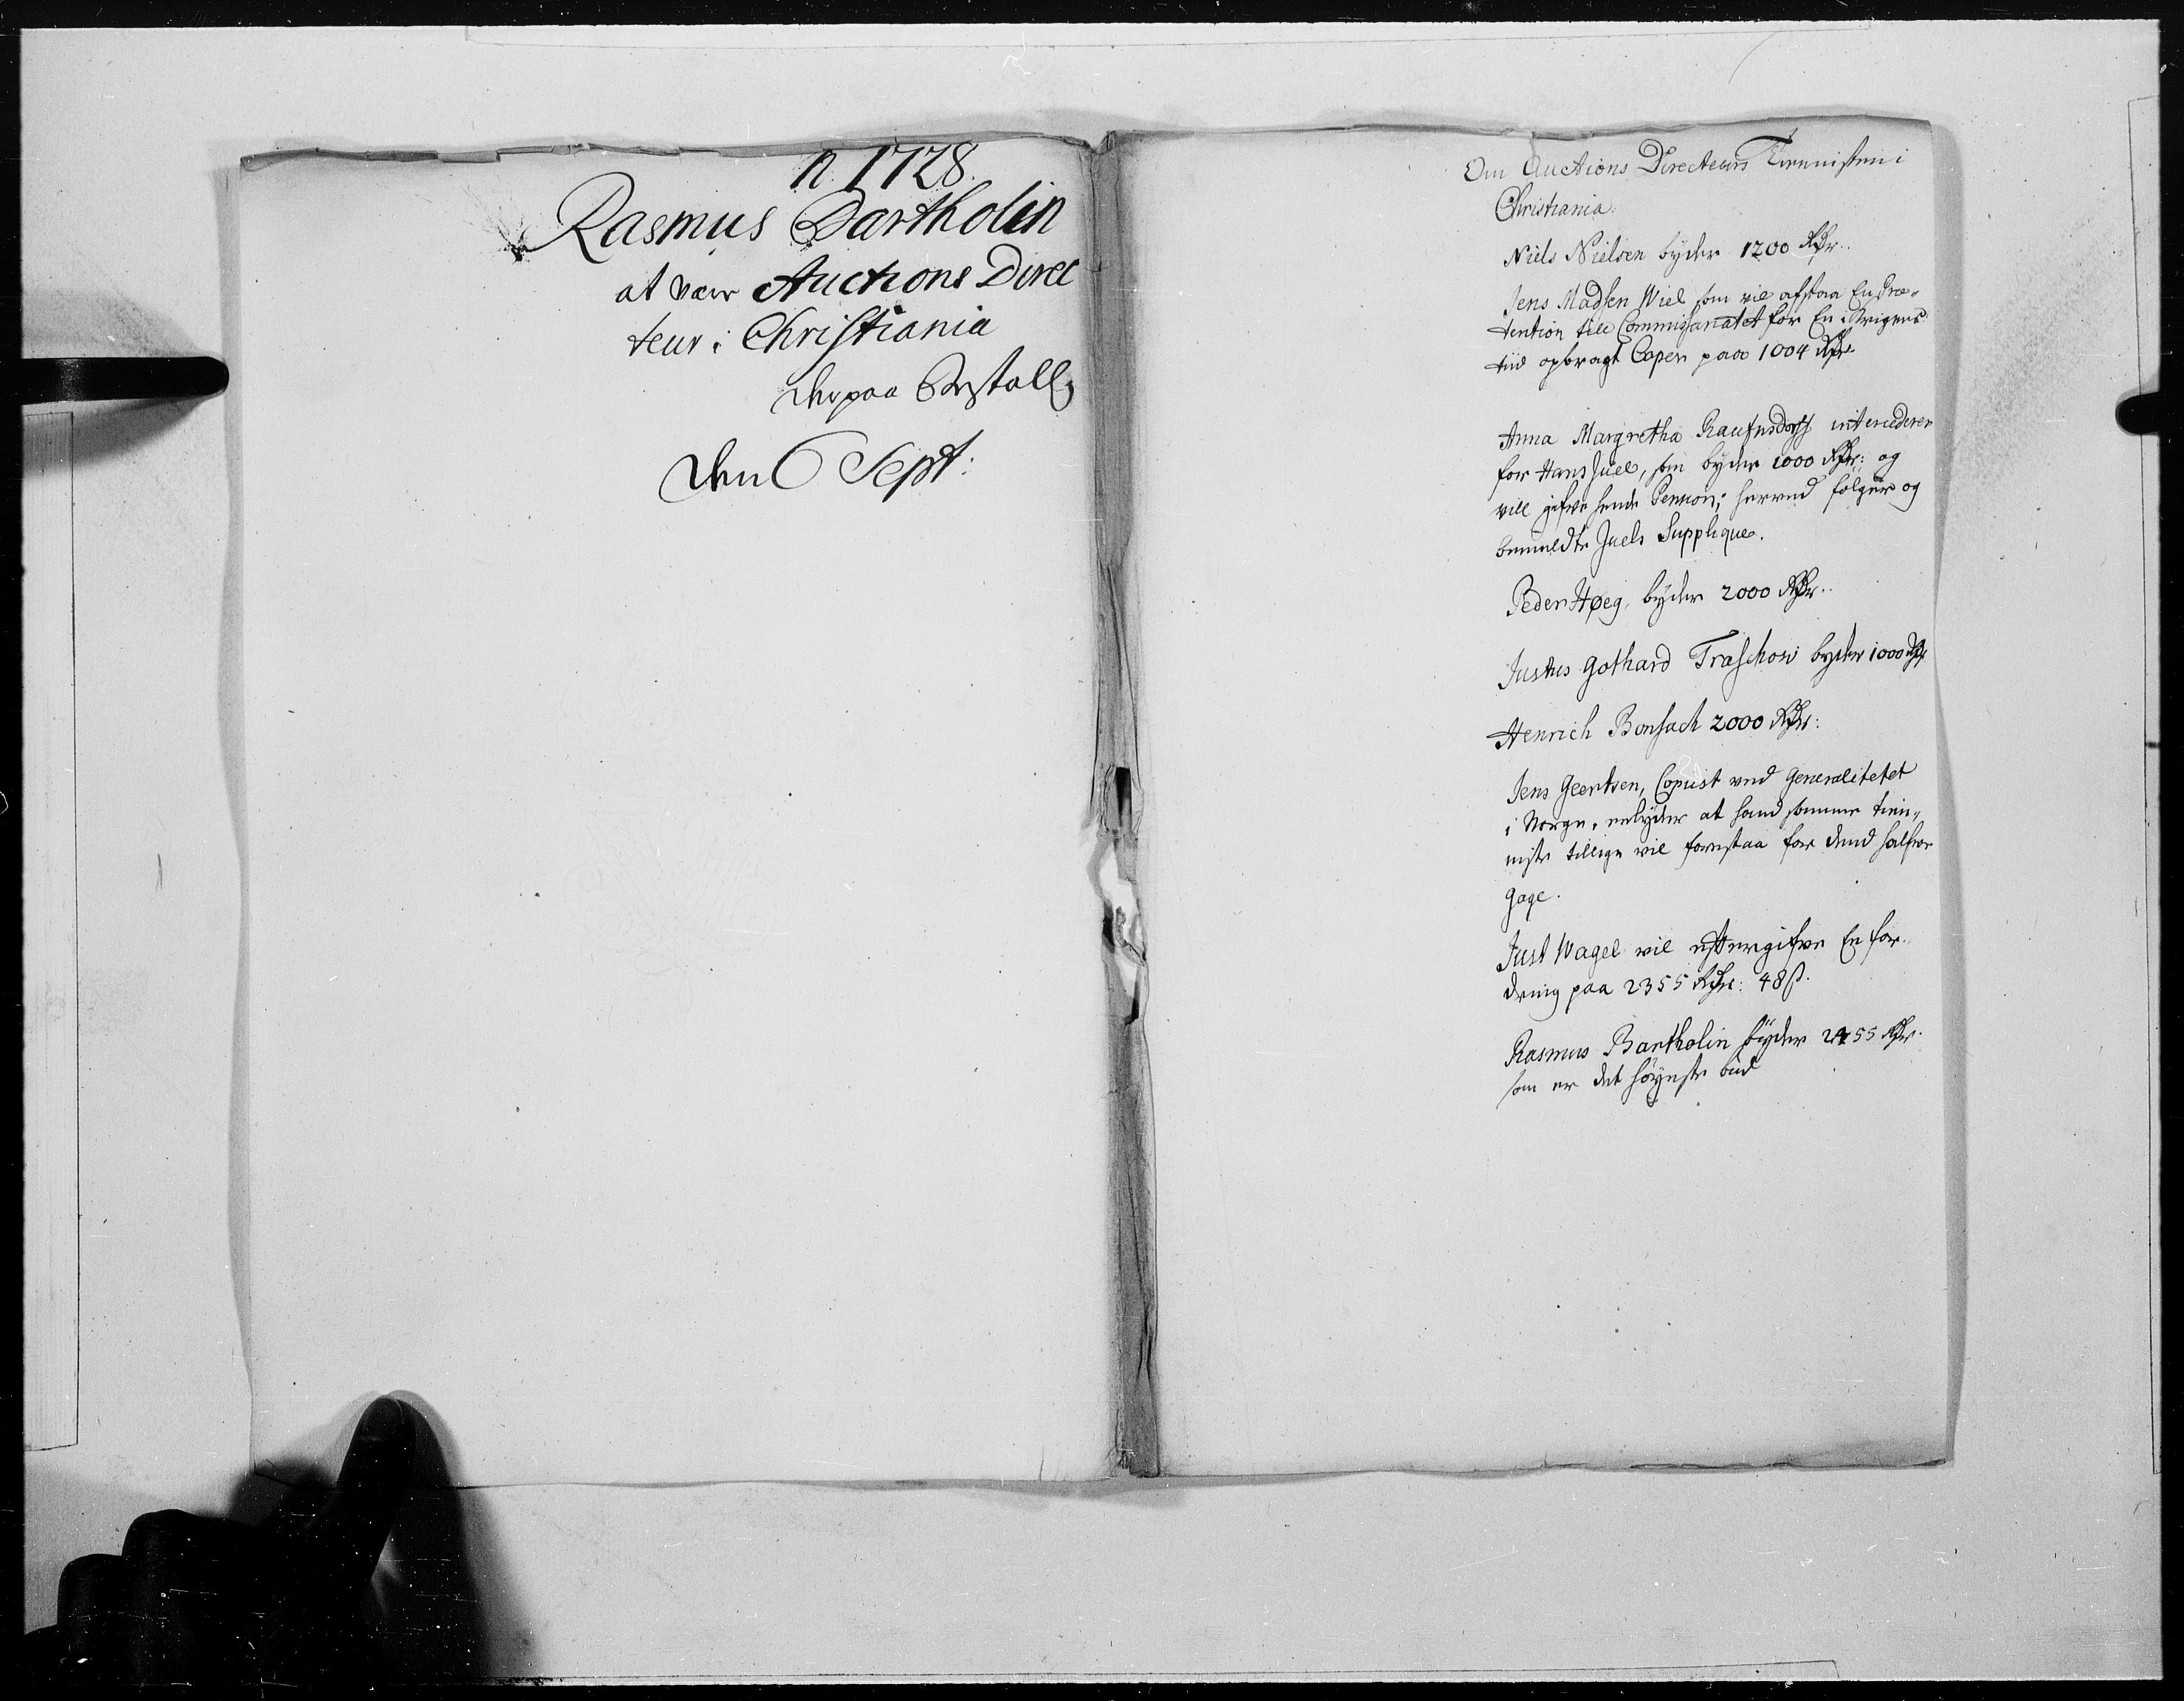 n. 1728.
Rasmus Bartholin
at være Auctions Direc
teur i Christiania
derpaa Bestall
den 6 Sept:
Om Auctions Directeurs Tienisten i
Christiania.
Niels Nielsen byder 1200 Rdr.
Jens Madsen Wiel som vil afstaa En Præ-
tention till Commissariatet for En i Krigens
tiid opbragt Caper paa 1004 Rdr.
Anna Margretha intercederer
for Hans Juel, som byder 1000 Rdr: og
vill gifve hende Pension; herved følger og
bemeldte Juels Supplique.
Peder Høeg, byder 2000 Rdr.
Justus Gothard Traschow byder 1000 Rdr
Henrich Bonsach 2000 Rdr:
Jens Geertsen, Copiist ved Generalitetet
i Norge, at hand samme tien-
niste tillige vil forestaa for dend halfve
Gage.
Just Wagel vil eftergifve En for-
dring paa 2355 Rdr: 48 ß.
Rasmus Bartholin byder 2455 Rdr.
som er det høyeste bud